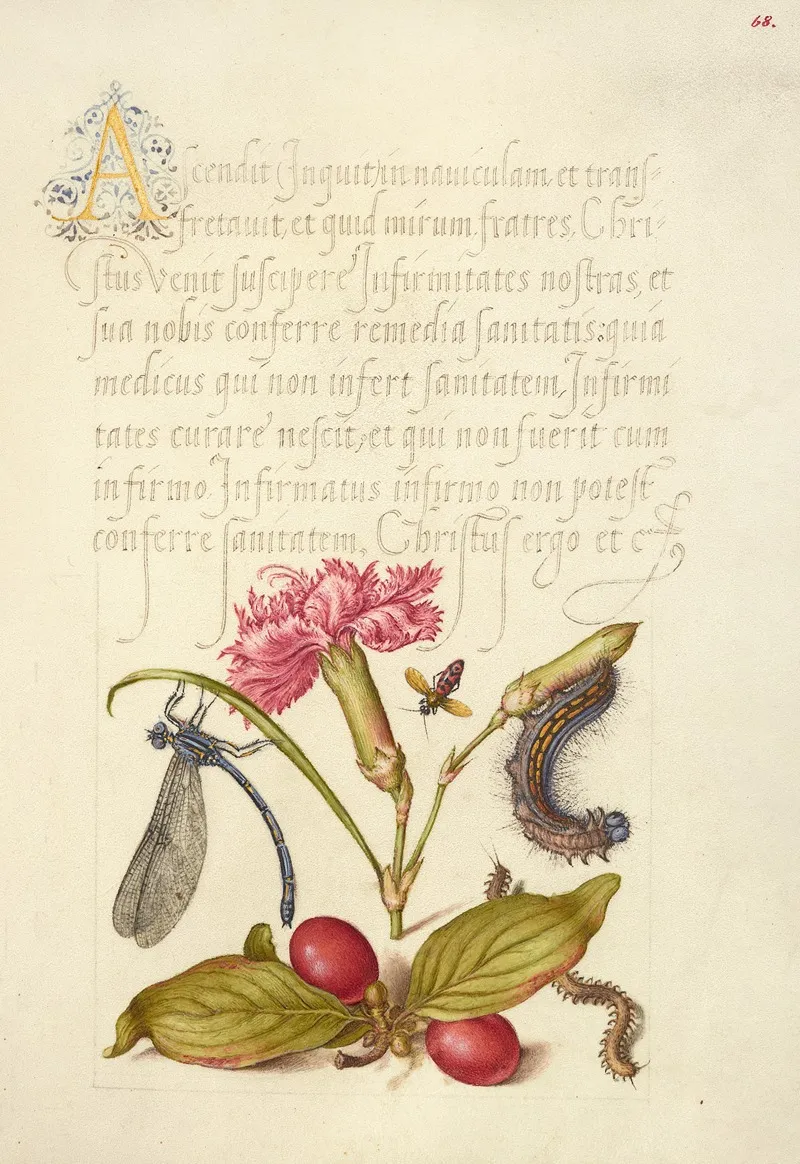 68.
Ascendit (Inquit) in nauiculam, et trans-
fretauit, et quid mirum, fratres, Chri-
stus Venit suscipere Infirmitates nostras, et
sua nobis conferre remedia sanitatis: quia
medicus qui non infert sanitatem, Infirmi
tates curare nescit, et qui non fuerit cum
infirmo Infirmatus infirmo non potest
conferre sanitatem, Christus ergo et c̃